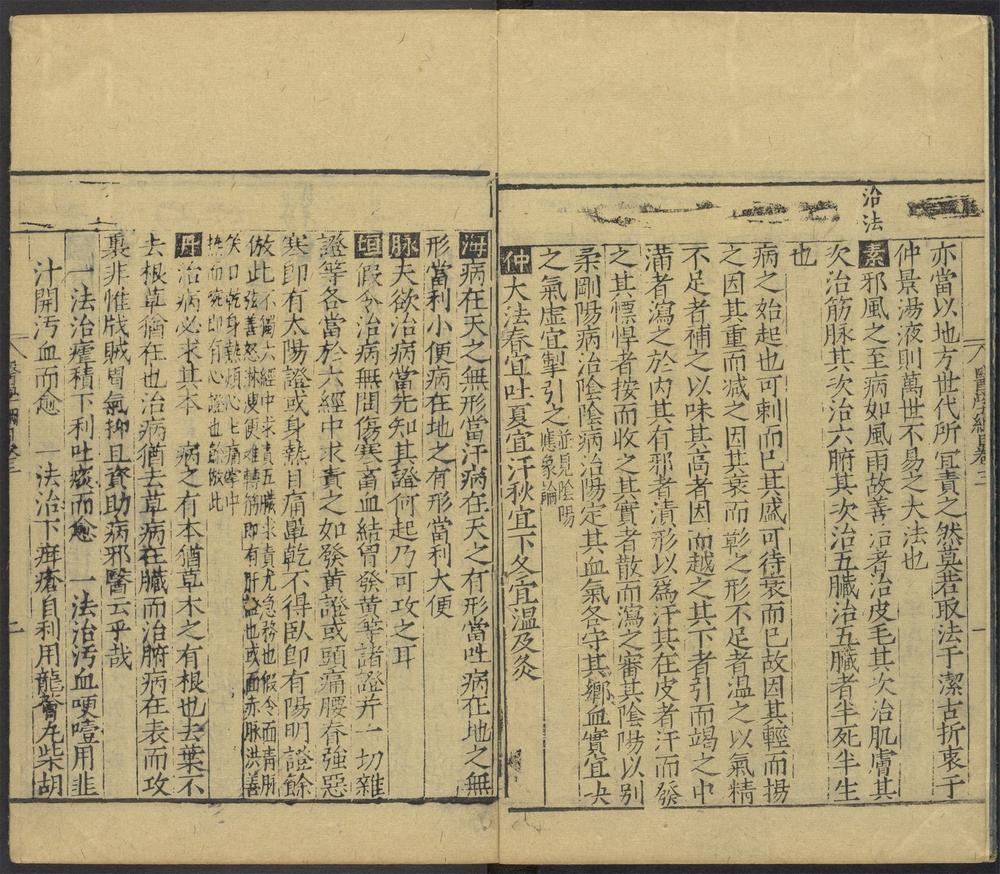 亦當以地方世代所宜責之然莫若取法于潔古折衷于
仲景湯液則萬世不易之大法也
治法
素邪風之至病如風雨故善治者治皮毛其次治肌膚其
次治筋脉其次治六腑其次治五臟治五臟者半死半生
也
病之始起也可刺而已其盛可待衰而已故因其輕而揚
之因其重而減之因其衰而彰之形不足者温之以氣精
不足者補之以味其高者因而越之其下者引而竭之中
滿者瀉之於內其有邪者漬形以爲汗其在皮者汗而發
之其慓悍者按而收之其實者散而瀉之審其陰陽以別
柔剛陽病治陰陰病治陽定其血氣各守其鄉血實宜决
之氣虛宜掣引之並見陰陽應象論
仲大法春宜吐夏宜汗秋宜下冬宜温及灸
海病在天之無形當汗病在天之有形當吐病在地之無
形當利小便病在地之有形當利大便
脉夫欲治病當先知其證何起乃可攻之耳
垣假令治病無問傷寒畜血結胷發黄等諸證并一切雜
證等各當於六經中求責之如發黄證或頭痛腰脊強惡
寒即有太陽證或身熱目痛鼻乾不得臥即有陽明證餘
倣此不獨六經中求責五臟求責尤急務也假令面青脉
弦善怒淋溲便難轉筋即有肝證也或面赤脉洪善
笑口乾身熱煩心心痛掌中
熱而啘即有心證也餘倣此
丹治病必求其本 病之有本猶草木之有根也去葉不
去根草猶在也治病猶去草病在臟而治腑病在表而攻
裏非惟戕賊胃氣抑且資助病邪醫云乎哉
一法治瘧積下利吐痰而愈 一法治汚血哽噎用韭
汁開汚血而愈 一法治下疳瘡自利用龍薈丸柴胡
二